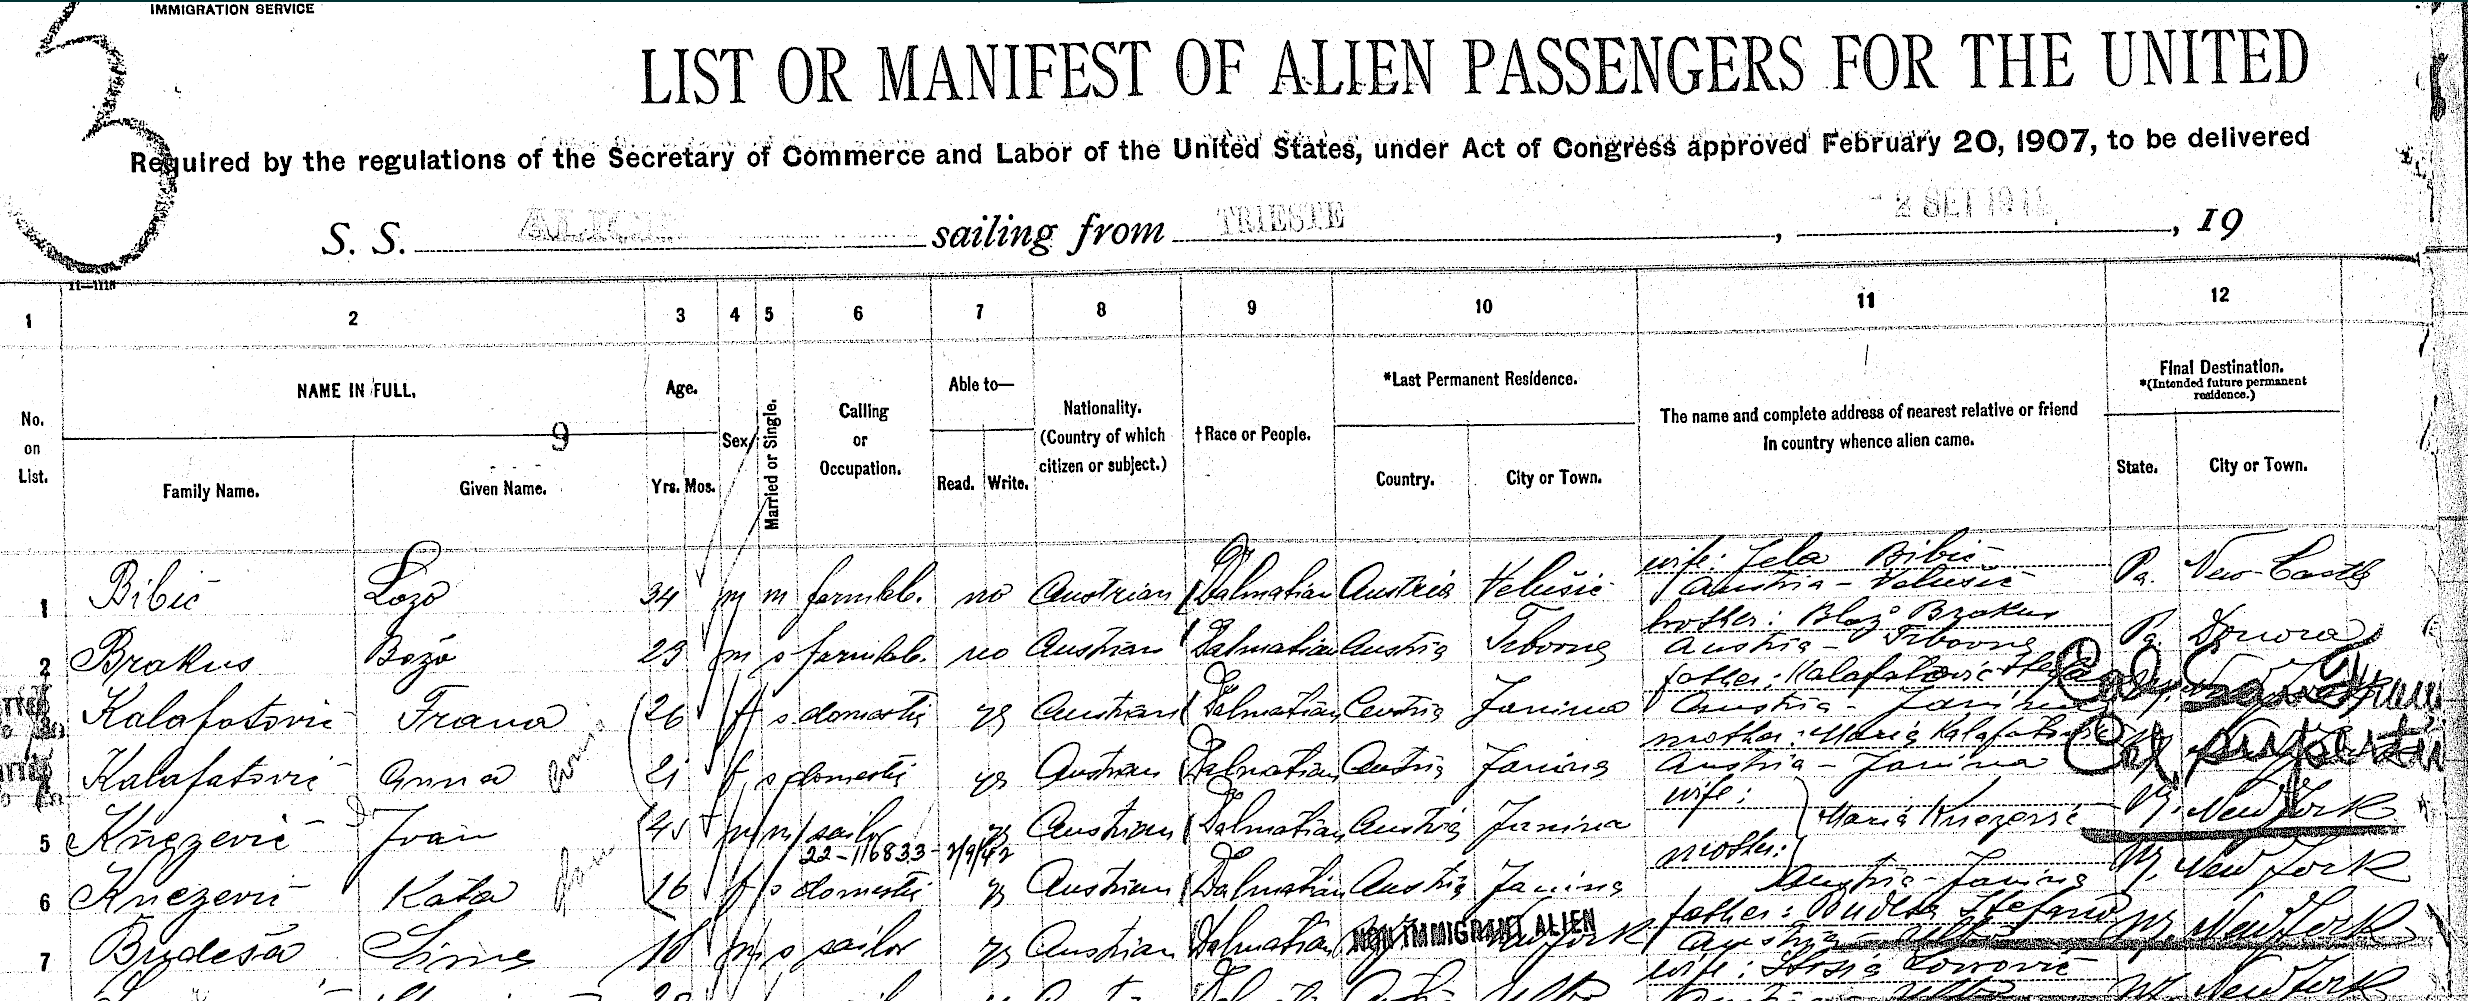 IMMIGRATION SERVICE
3
LIST OR MANIFEST OF ALIEN PASSENGERS FOR THE UNITED
Required by the regulations of the Secretary of Commerce and Labor of the United States, under Act of Congress approved February 20, 1907, to be delivered
S. S. ALICE sailing from TRIESTE, 2 SET 1911, 19
1 2 3 4 5 6 7 8 9 10 11 12
No. on List.
NAME IN FULL.
9
Family Name. Given Name.
Age.
Yrs. Mos.
Sex
Married or Single.
Calling or Occupation.
Able to—
Read. Write.
Nationality. (Country of which citizen or subject.)
†Race or People.
*Last Permanent Residence.
Country. City or Town.
The name and complete address of nearest relative or friend in country whence alien came.
Final Destination.
*(Intended future permanent residence.)
State. City or Town.
1 Bibić Lozo 34 m m farmlab. no Austrian Dalmatian Austria Velušić wife: Jela Bibić Austria - Velušić Pa. New Castle
2 Brakus Božo 23 m s farmlab. no Austrian Dalmatian Austria brother: Blaž Brakus Austria - Pa. Donora
Kalafatović Frana 26 f s domestic yes Austrian Dalmatian Austria Janina father: Kalafatović Austria - Janina Cal. San
Kalafatović Anna 21 f s domestic yes Austrian Dalmatian Austria Janina mother: Maria Kalafatović Austria - Janina Cal.
5 Knezević Ivan 45 m m sailor yes Austrian Dalmatian Austria Janina wife: Maria Knezević N.Y. New York
22-116833-
6 Knezević Kata 16 f s domestic yes Austrian Dalmatian Austria Janina mother: Austria - Janina N.Y. New York
7 Budeša Sime 18 m s sailor yes Austrian Dalmatian NON IMMIGRANT ALIEN N.Y. New York father: Budeša Stefano Austria - N.Y. New York
wife: N.Y. New York